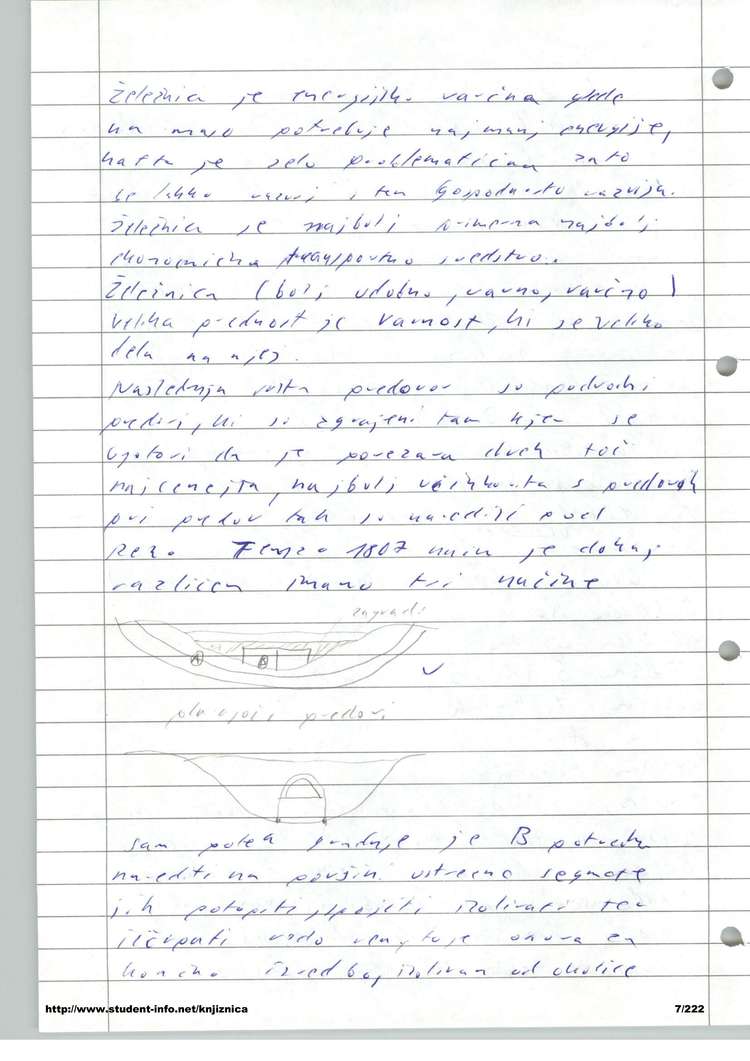 Železnica je energijsko varčna glede
na maso potrebuje najmanj energije,
nafta je zelo problematična zato
se lahko razvij i tem gospodarstvo razvija.
Železnica je najbolj primerna najbolj
ekonomična transportno sredstvo.
Železnica (bolj udobno, varno, varčno)
velika prednost je varnost, ki se veliko
dela na njej.
Naslednja vrsta predorov so podvodni
predori, ki so zgrajeni tam kjer se
ugotovi da je povezava dveh točk
najcenejša, najbolj učinkovita s predorom
pri predor tak so naredili pod
1807 je dokaj
različen imamo tri načine
zagradi
A B
plavajoči predori
sam potek gradnje je B potrebno
narediti na površini ustrezno segmente
jih potopiti, spojiti izolirati ter
izčrpati vodo
končno izvedbo, izoliran od okolice
http://www.student-info.net/knjiznica 7/222